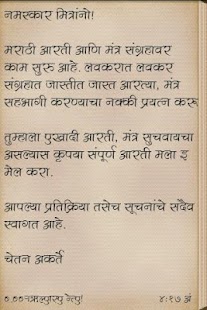 नमस्कार मित्रांनो!
मराठी आरती आणि मंत्र संग्रहावर
काम सुरु आहे. लवकरात लवकर
संग्रहात जास्तीत जास्त आरत्या, मंत्र
सहभागी करण्याचा नक्की प्रयत्न करू
तुम्हाला एखादी आरती, मंत्र सुचवायचा
असल्यास कृपया संपूर्ण आरती मला इ
मेल करा.
आपल्या प्रतिक्रिया तसेच सूचनांचे सदैव
स्वागत आहे.
चेतन अकर्ते